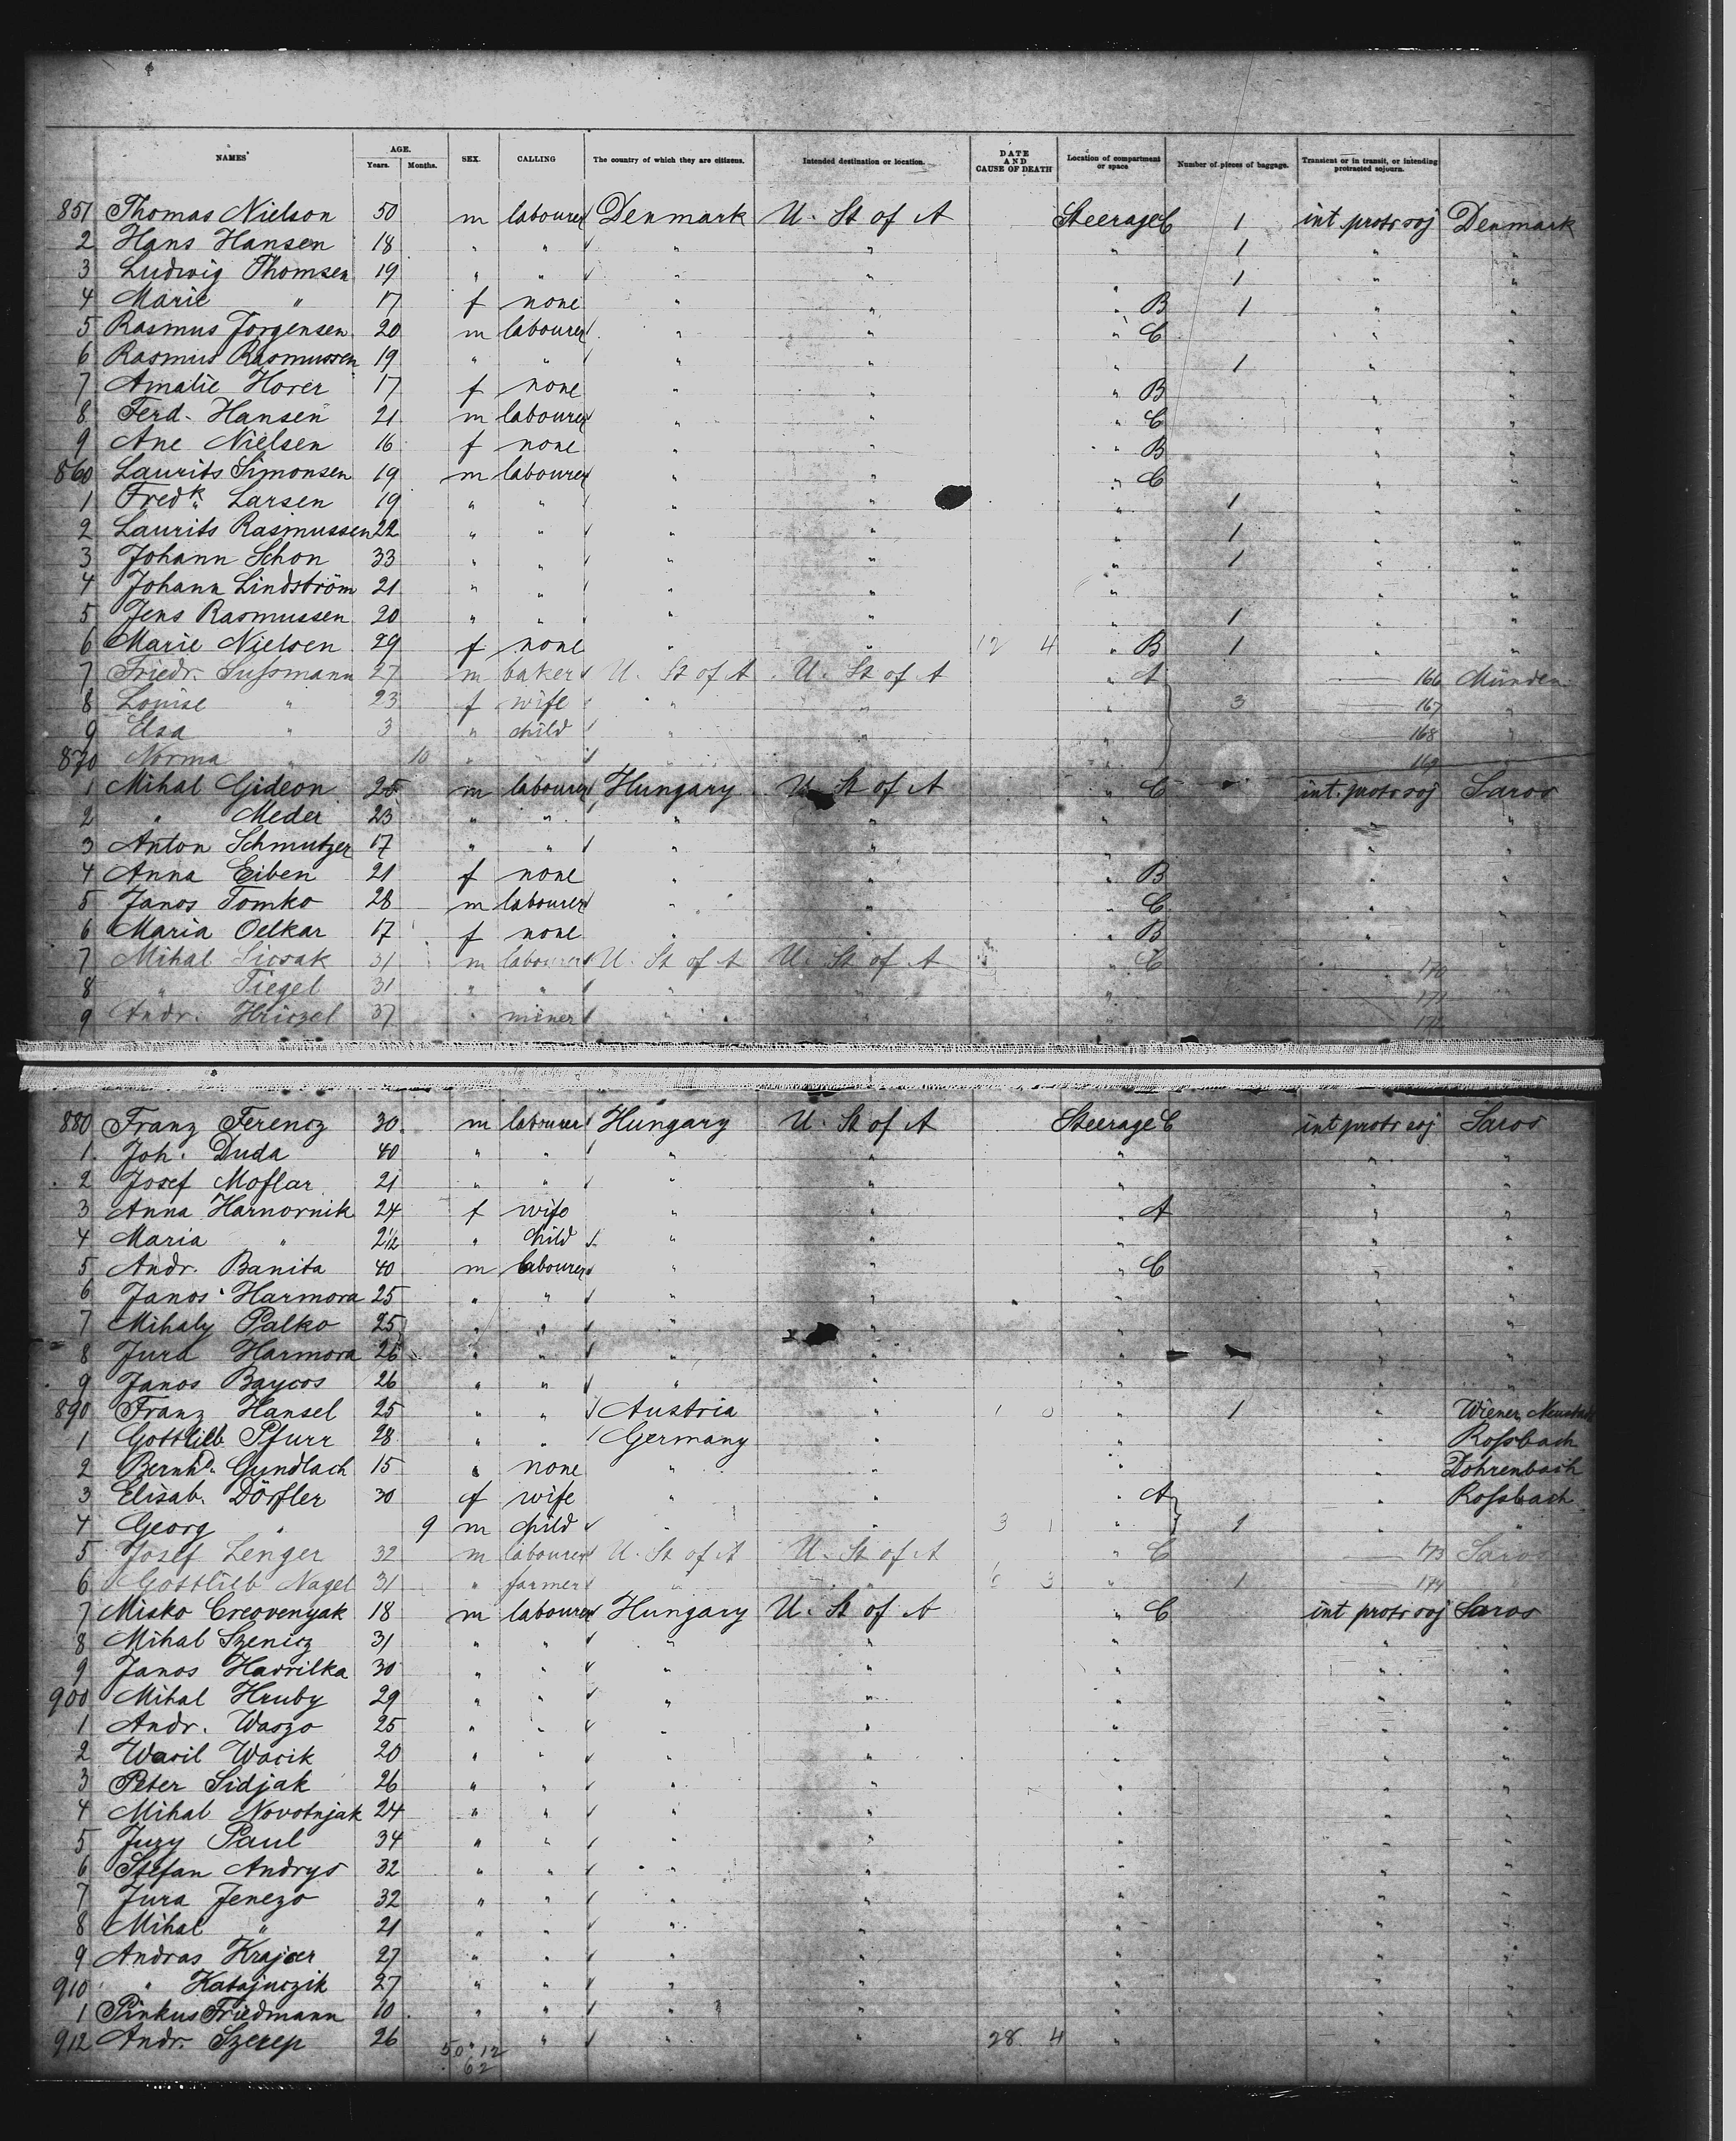 NAMES AGE. Years. Months. SEX. CALLING The country of which they are citizens. Intended destination or location. DATE AND CAUSE OF DEATH Location of compartment or space Number of pieces of baggage. Transient or in transit, or intending protracted sojourn.
851 Thomas Nielson 50 m labourer Denmark U. St of A Steerage C 1 int protr soj Denmark
2 Hans Hansen 18 " " " " " 1 " "
3 Ludwig Thomsen 19 " " " " " 1 " "
4 Marie " 17 f none " " " B 1 " "
5 Rasmus Jorgensen 20 m labourer " " " C " "
6 Rasmus Rasmussen 19 " " " " " 1 " "
7 Amalie Hover 17 f none " " " B " "
8 Ferd. Hansen 21 m labourer " " " C " "
9 Ane Nielsen 16 f none " " " B " "
860 Laurits Simonsen 19 m labourer " " " C " "
1 Fredk. Larsen 19 " " " " " 1 " "
2 Laurits Rasmussen 22 " " " " " 1 " "
3 Johann Schon 33 " " " " " 1 " "
4 Johann Lindström 21 " " " " " " "
5 Jens Rasmussen 20 " " " " " 1 " "
6 Marie Nielsen 29 f none " " 12 4 " B 1 " "
7 Friedr. Sussmann 27 m baker U. St of A U. St of A " A 166 Münden
8 Louise " 23 f wife " " " 3 167 "
9 Elsa " 3 " child " " " 168 "
870 Norma " 10 " " " " " 169
1 Mihal Gideon 25 m labourer Hungary U. St of A " C int. protr soj Saros
2 " Meder 23 " " " " " " "
3 Anton Schmutzer 17 " " " " " " "
4 Anna Eiben 21 f none " " " B " "
5 Janos Tomko 28 m labourer " " " C " "
6 Maria Oelkar 17 f none " " " B " "
7 Mihal Sicsak 31 m labourer U. St of A U. St of A " C 170
8 " Tiegel 31 " " " " " 171
9 Andr. Hriczel 37 " miner " " 172
880 Franz Ferencz 30 m labourer Hungary U. St of A Steerage C int protr soj Saros
1 Joh. Duda 40 " " " " " " "
2 Josef Moflar 21 " " " " " " "
3 Anna Harnornik 24 f wife " " " A " "
4 Maria " 2½ " child " " " " "
5 Andr. Banita 40 m labourer " " " C " "
6 Janos Harmora 25 " " " " " " "
7 Mihaly Palko 25 " " " " " " "
8 Jura Harmora 26 " " " " " " "
9 Janos Baycos 26 " " " " " " "
890 Franz Hansel 25 " " Austria " 1 0 " 1 " Wiener Neustadt
1 Gottlieb Pfurr 28 " " Germany " " " Rossbach
2 Bernhd. Gundlach 15 " none " " " " Dohrenbach
3 Elisab. Dörfler 30 f wife " " " A " Rossbach
4 Georg " 9 m child " " 3 1 " 1 " "
5 Josef Lenger 32 m labourer U. St of A U. St of A " C 173 Saros
6 Gottlieb Nagel 31 " farmer " " 3 " 1 174
7 Misko Creovenyak 18 m labourer Hungary U. St of A " C int protr soj Saros
8 Mihal Szenicz 31 " " " " " " "
9 Janos Havrilka 30 " " " " " " "
900 Mihal Hruby 29 " " " " " " "
1 Andr. Waszo 25 " " " " " " "
2 Wasil Wacik 20 " " " " " " "
3 Peter Sidjak 26 " " " " " " "
4 Mihal Novotnjak 24 " " " " " " "
5 Jury Paul 34 " " " " " " "
6 Stefan Andrys 32 " " " " " " "
7 Jura Jenezo 32 " " " " " " "
8 Mihal " 21 " " " " " " "
9 Andras Krajcer 27 " " " " " " "
910 " Katajuczik 27 " " " " " " "
1 Pinkus Friedmann 10 " " " " " " "
912 Andr. Szerep 26 " " " " 28 4 " " "
50 12
62